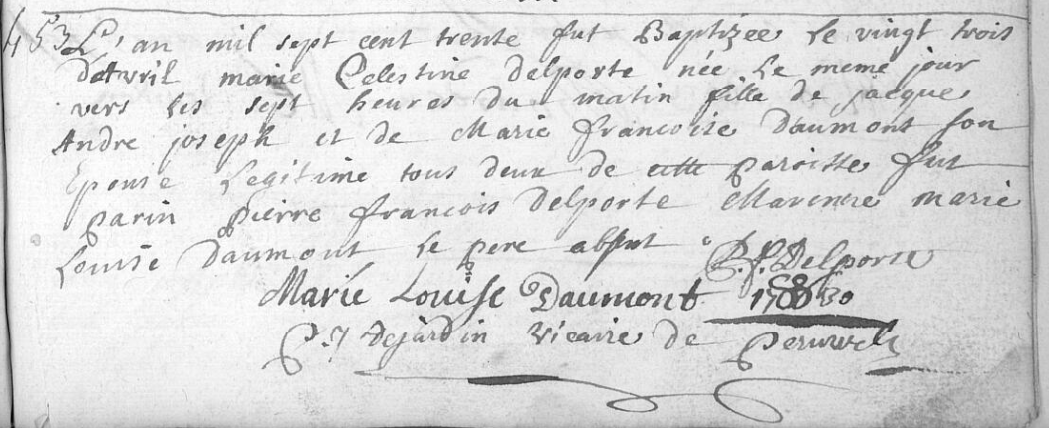 53 L'an mil sept cent trente fut Baptizée le vingt trois
d'avril marie Celestine delporte née le meme jour
vers les sept heures du matin fille de jacque
Andre joseph et de Marie francoise Daumont son
Epouse Legitime tous deux de cette paroisse fut
parin pierre francois Delporte Marenne marie
Louise Daumont le pere absent P. f. Delporte
Marie Louise Daumont 1730
P. J Dejardin Vicaire de peruwelz